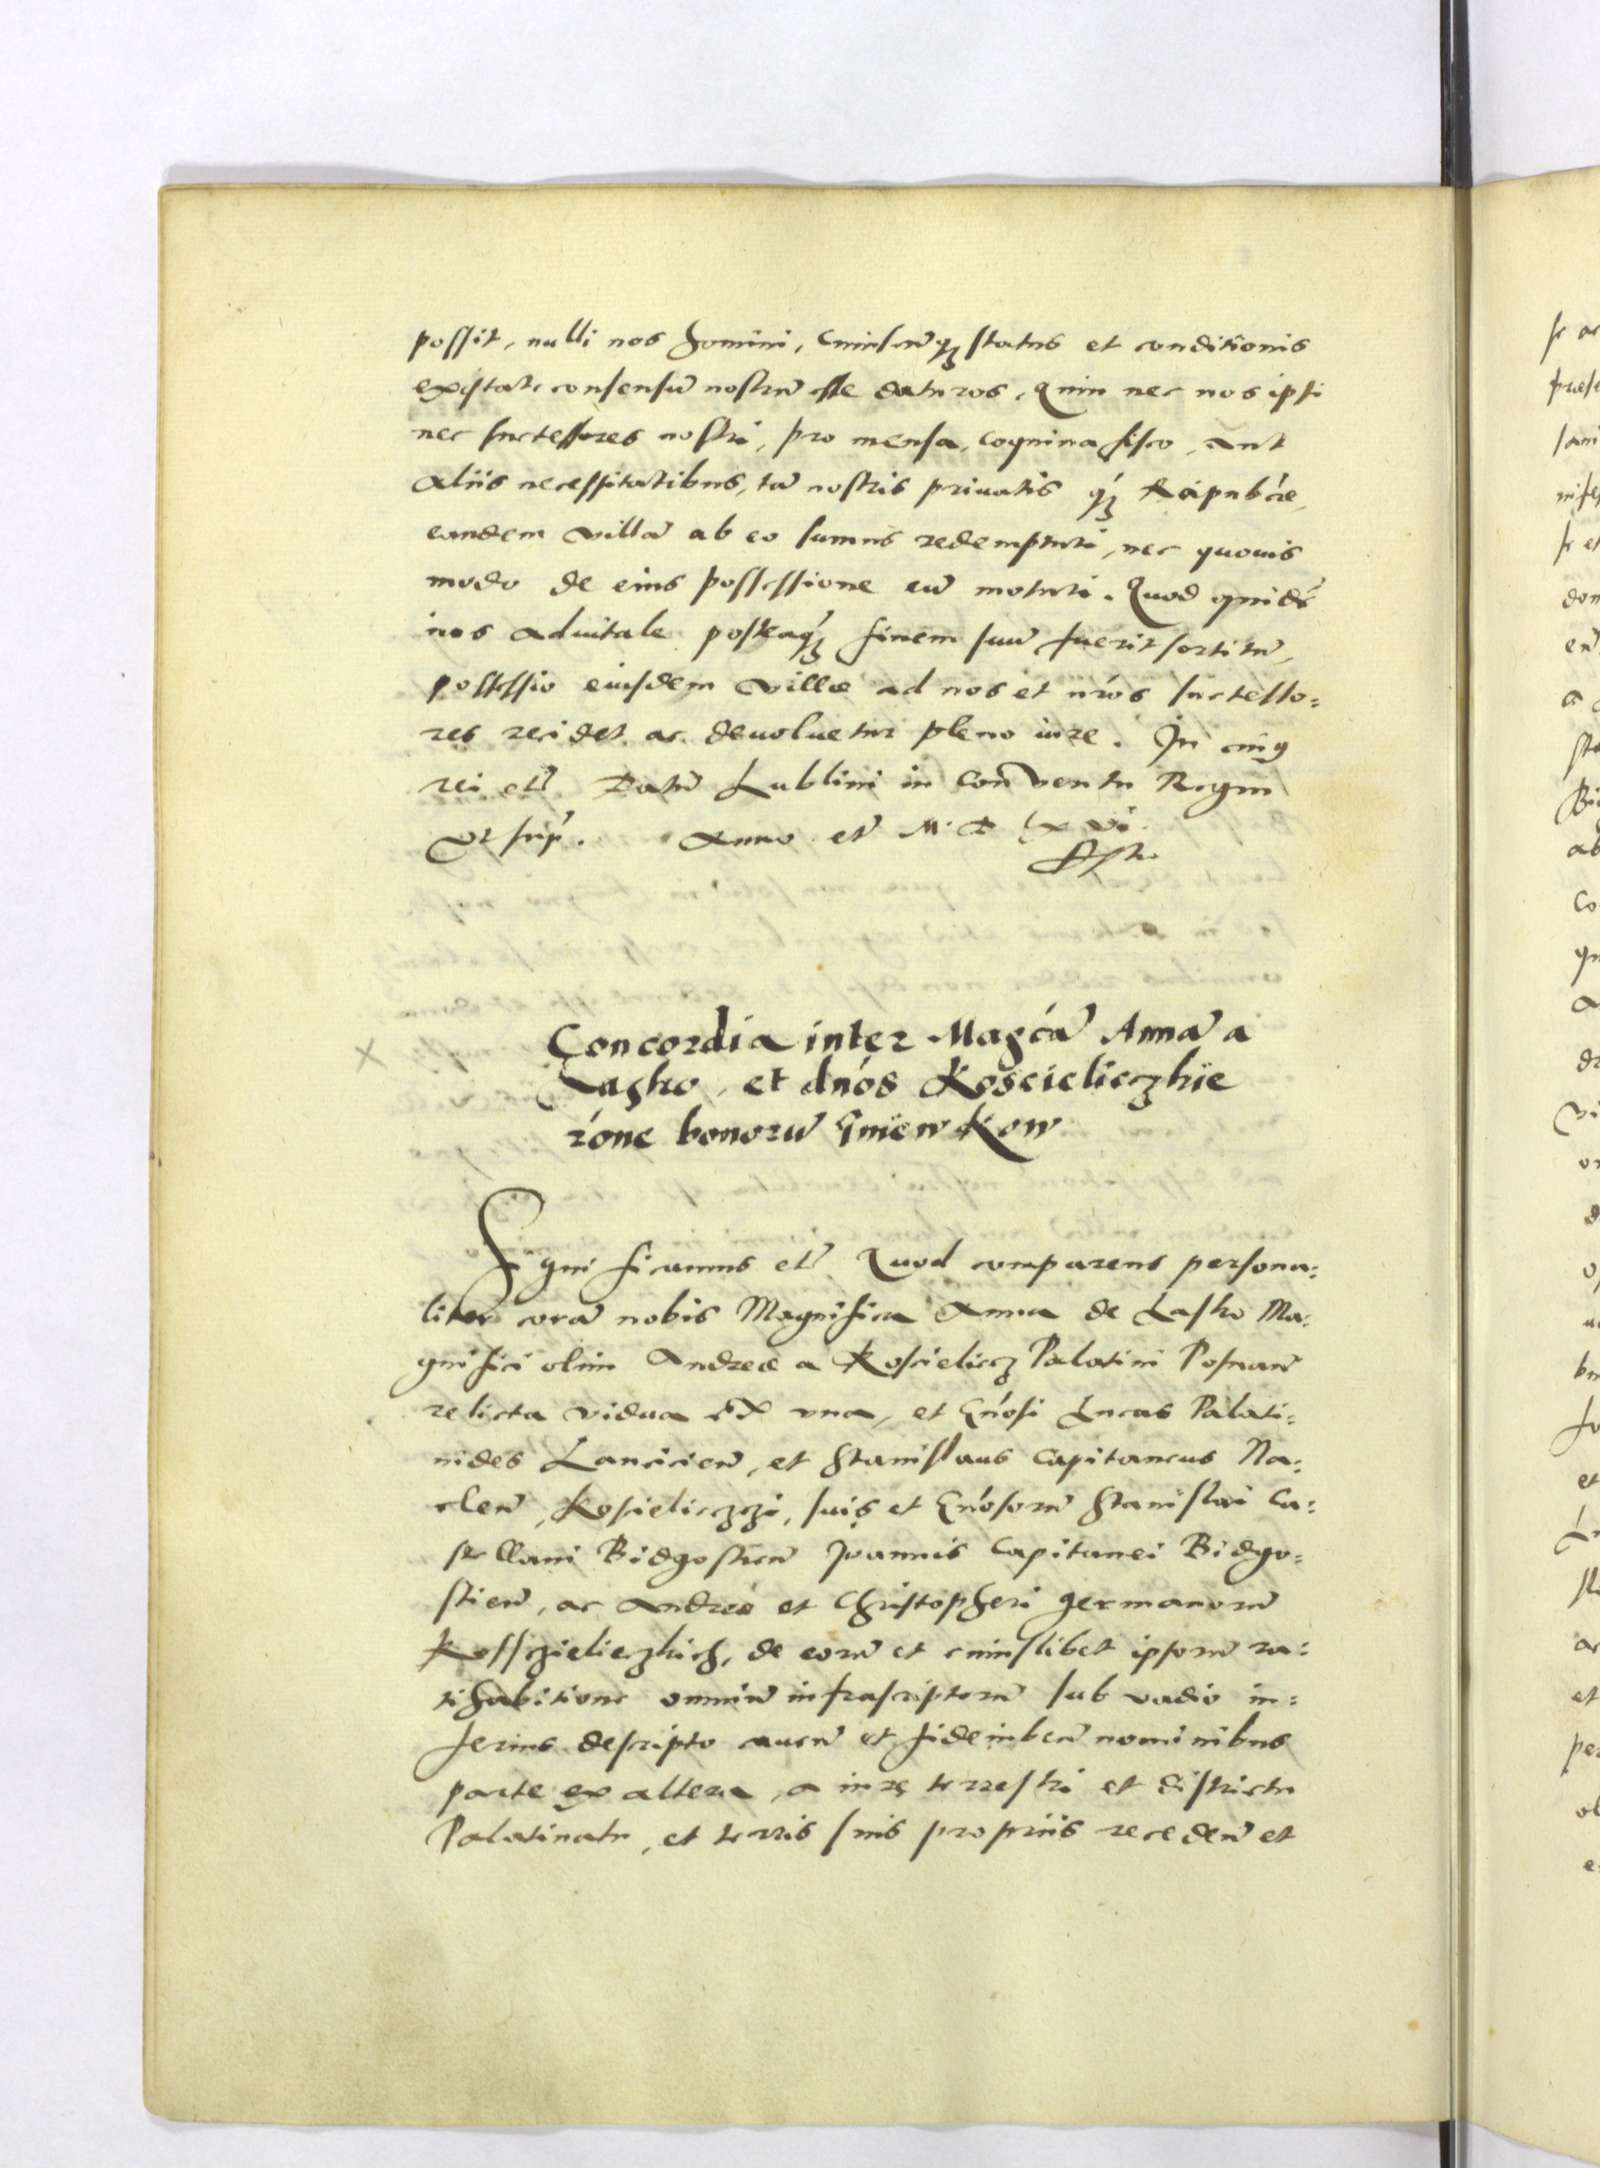 possit, nulli nos homini, cuiuscūq₃ status et conditionis
existat, consensū nostrū esse daturos. Quin nec nos ipsi
nec successores nostri, pro mensa, coquina fisco, aut
aliis necessitatibus, tā nostris privatis q́₃ Reipubĉae,
eandem villā ab eo sumus redempturi, nec quovis
modo de eius possessione eū moturi. Quod quidē
ius advitale posteaq́₃ finem suū fuerit sortitū,
possessio eiusdem villae ad nos et nŕos successo=
res recidet ac devolvetur pleno iure. In cuiꝰ
rei et̃. Datū Lublini in conventu Regni
Vt suṕ. Anno et̃ M. D lxvi.
Concordia inter Magćā Annā a
Lasko, et dńos Koscieliczkie
ŕone bonorū Gniewkow
Significamus et̃ Quod comparens persona=
liter corā nobis Magnifica Anna de Lasko Ma=
gnifici olim Andreae a Koscielicz Palatini Posnań
relicta vidua ex una, et Gńosi Lucas Palati=
nides Lanciciēn, et Stanislaus Capitaneus Na=
clēn, Koscieliczczi, suis et Gńosorū Stanislai Ca=
stellani Bidgostiēn Joannis Capitanei Bidgo=
stiēn, ac Andreae et Christopheri germanorū
Kossczieliczkich, de eorū et cuiuslibet ipsorū ra=
tihabitione omniū infrascriptorū sub vadio in=
ferius descripto cavēn et fideiubēn nominibus
parte ex altera, a iure terrestri et districtu
Palatinatu, et terris suis propriis recedēn et